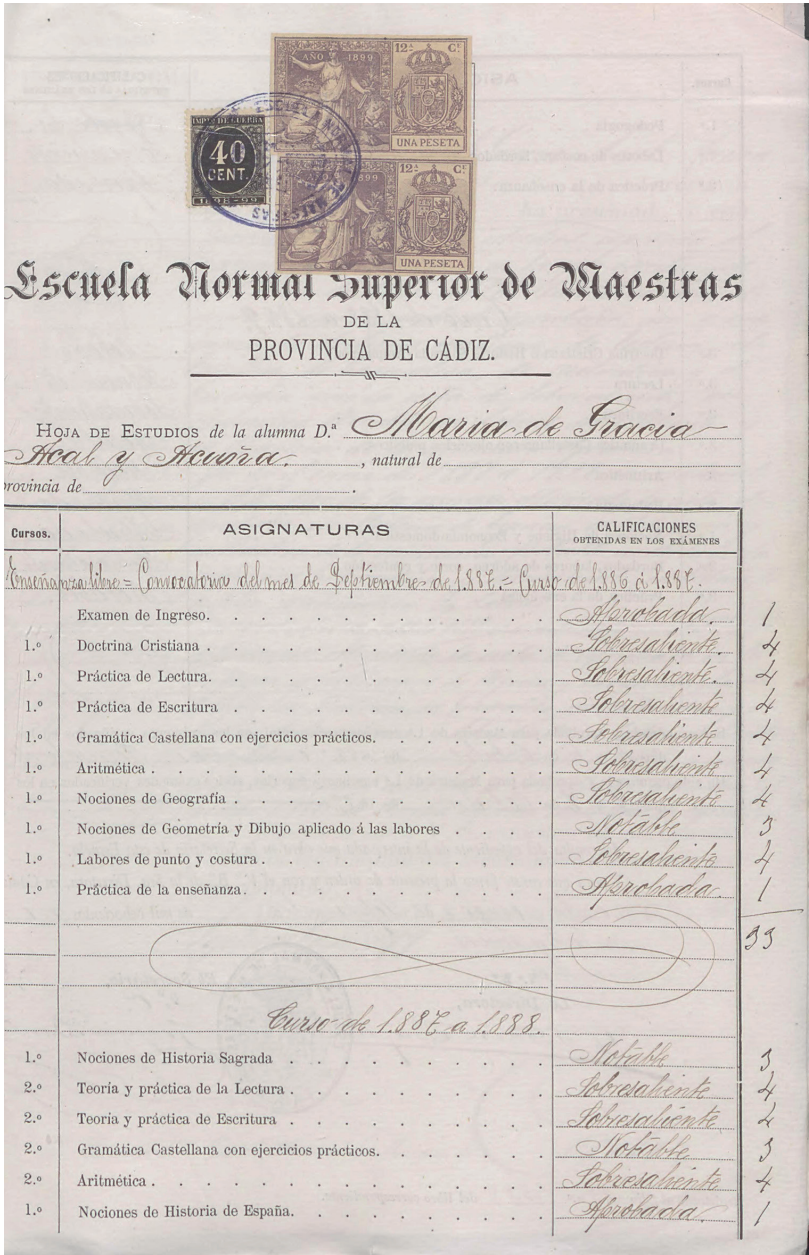 AÑO 1899 12ª Cᵉ.
UNA PESETA
IMPTO DE GUERRA
40
CENT.
1898-99
ESCUELA NORMAL DE MAESTRAS
1899 12ª Cᵉ.
UNA PESETA
Escuela Normal Superior de Maestras
DE LA
PROVINCIA DE CÁDIZ.
HOJA DE ESTUDIOS de la alumna D.ª Maria de Gracia
Acal y Acuña. , natural de
provincia de .
Cursos. ASIGNATURAS CALIFICACIONES
OBTENIDAS EN LOS EXÁMENES
Enseñanza libre = Convocatoria del mes de Septiembre de 1.887. = Curso de 1.886 á 1.887.
Examen de Ingreso. Aprobada. 1
1.º Doctrina Cristiana. Sobresaliente. 4
1.º Práctica de Lectura. Sobresaliente. 4
1.º Práctica de Escritura Sobresaliente 4
1.º Gramática Castellana con ejercicios prácticos. Sobresaliente 4
1.º Aritmética. Sobresaliente 4
1.º Nociones de Geografía Sobresaliente 4
1.º Nociones de Geometría y Dibujo aplicado á las labores Notable 3
1.º Labores de punto y costura. Sobresaliente 4
1.º Práctica de la enseñanza. Aprobada. 1
33
Curso de 1.887 a 1.888.
1.º Nociones de Historia Sagrada Notable 3
2.º Teoría y práctica de la Lectura. Sobresaliente 4
2.º Teoría y práctica de Escritura Sobresaliente 4
2.º Gramática Castellana con ejercicios prácticos. Notable 3
2.º Aritmética. Sobresaliente 4
1.º Nociones de Historia de España. Aprobada. 1